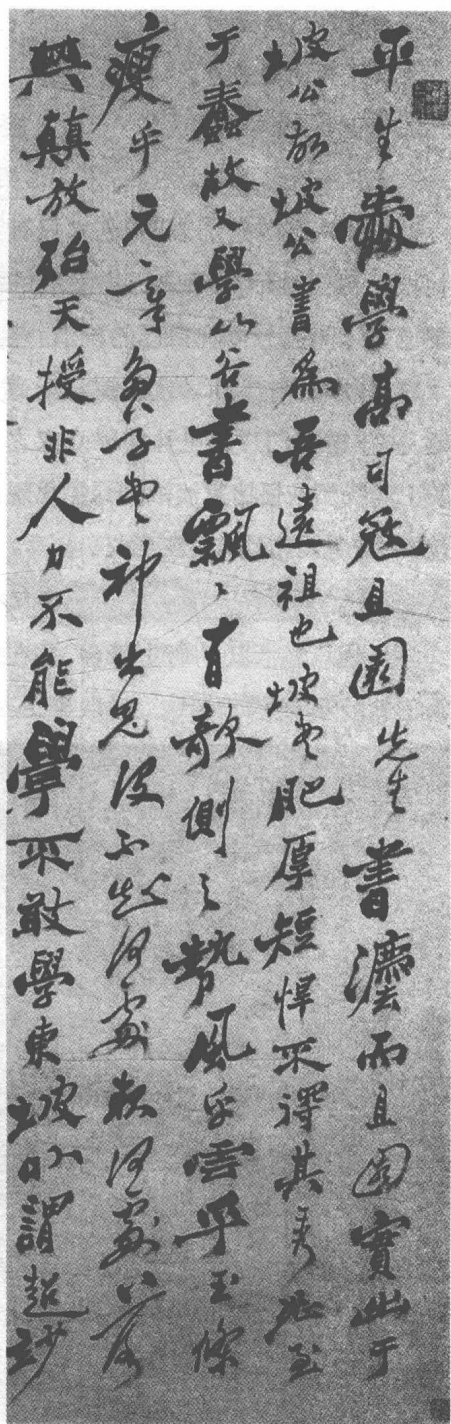 平生愛學高司寇且園先生書法而且園實出于
坡公故坡公書為吾遠祖也坡書肥厚短悍不得其秀恐至
于蠢故又學山谷書飄々有欹側之勢風乎雲乎玉條
瘦乎元章書神出鬼沒不知何處起何處落
顛放殆天授非人力不能學不敢學東坡以謂超妙